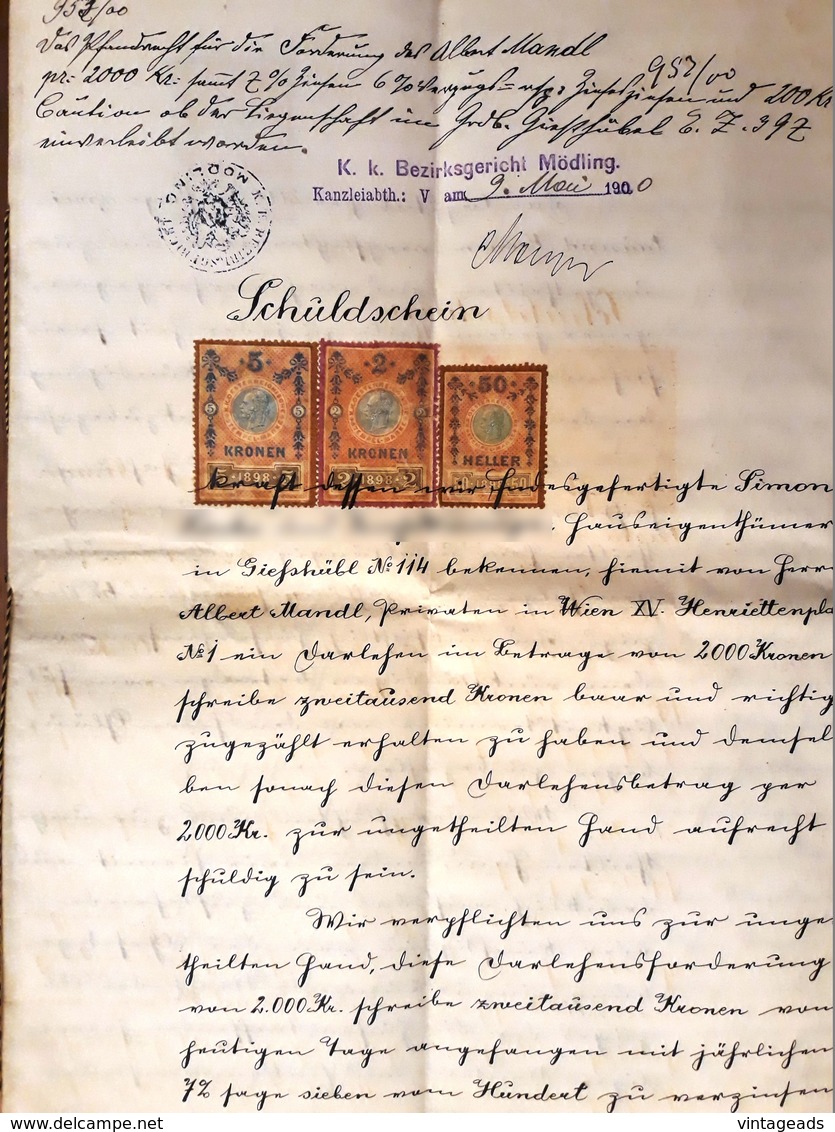 957/00
Das Pfandrecht für die Forderung des Albert Mandl
pr: 2000 Kr: samt 7% Zinsen 6% Verzugs= resp: Zinseszinsen und 200 Kr
957/00
Caution ob der Liegenschaft im Grdb. Giesshübel E. Z. 397
einverleibt worden.
K. k. Bezirksgericht Mödling.
Kanzleiabth.: V am 9. Mai 1900
K. K. BEZIRKSGERICHT MÖDLING
Schuldschein
5 2 50
5 5 2 2
KRONEN KRONEN HELLER
1898 2 1898 2
kraft dessen wir Endesgefertigte Simon
Hauseigenthümer
in Giesshübl No 114 bekennen, hiemit von Herr
Albert Mandl, Privaten in Wien XV. Henriettenpla
No 1 ein Darlehen im Betrage von 2000 Kronen
schreibe zweitausend Kronen baar und richtig
zugezählt erhalten zu haben und demsel
ben sonach diesen Darlehensbetrag per
2000 Kr. zur ungetheilten Hand aufrecht
schuldig zu sein.
Wir verpflichten uns zur unge
theilten Hand, diese Darlehensforderung
von 2.000 Kr. schreibe zweitausend Kronen von
heutigen Tage angefangen mit jährlichen
7% sage sieben vom Hundert zu verzinsen
vintageads